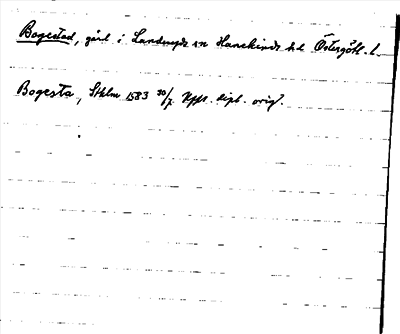 Bogestad, gård i Landeryds sn Hanekinds hd Östergötl. l.
Bogesta, Sthlm 1583 30/7 Upps. dipl. orig.